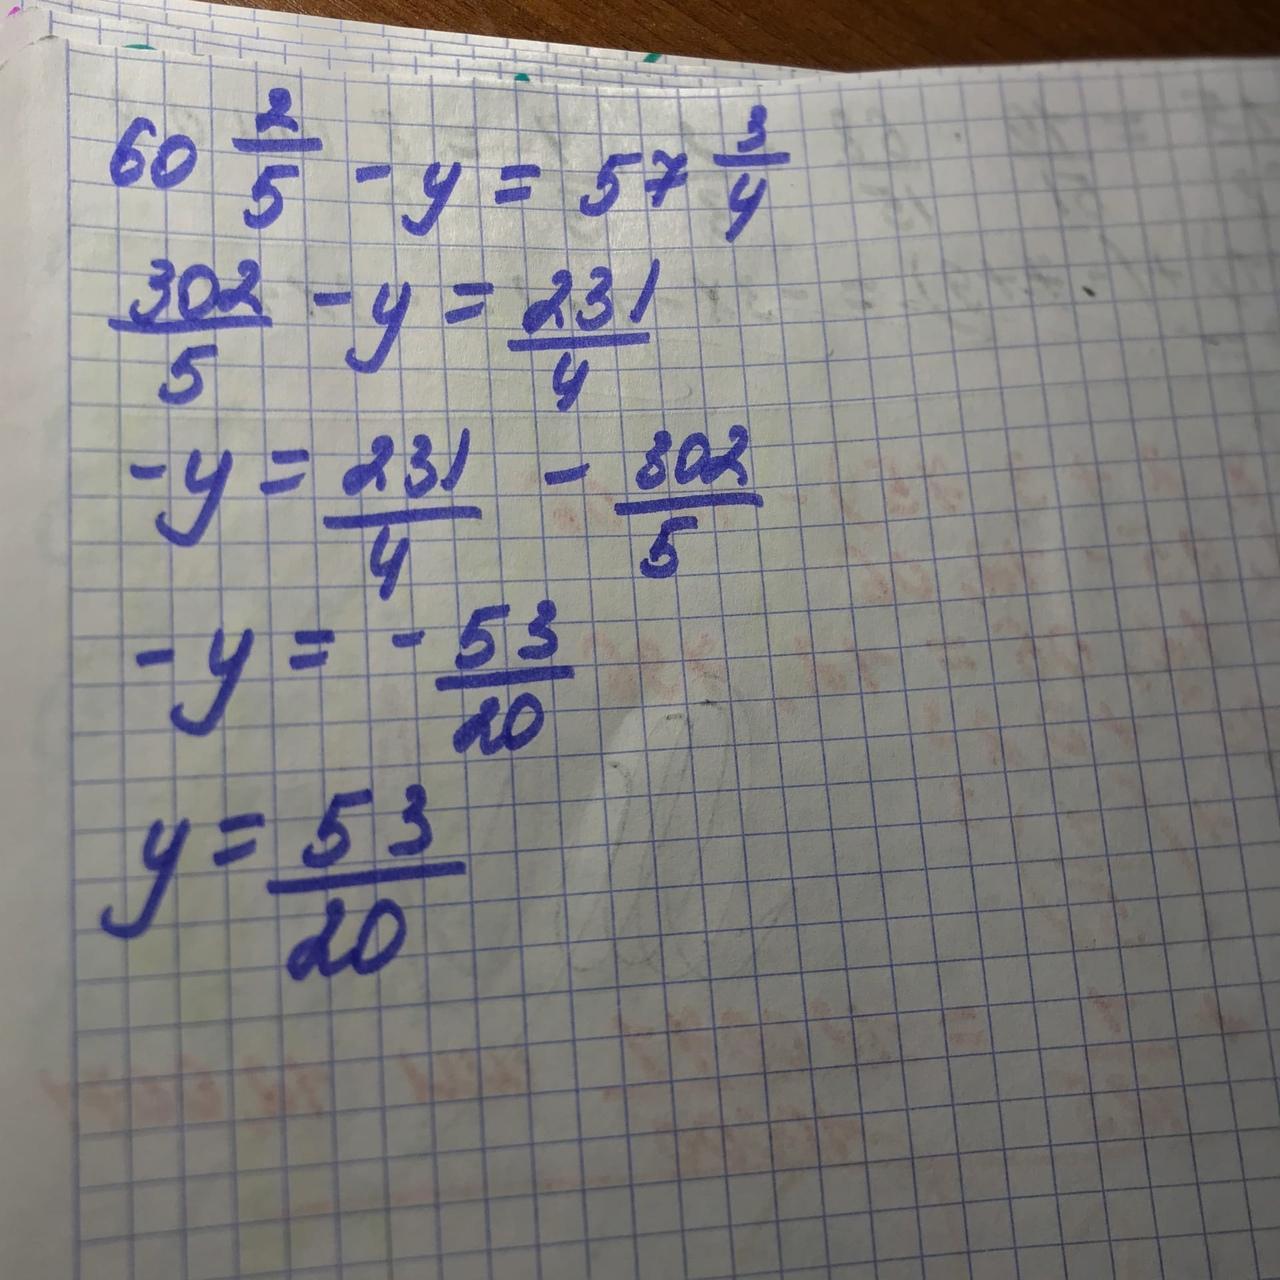 60 2/5 - y = 57 3/4
302/5 - y = 231/4
-y = 231/4 - 302/5
-y = - 53/20
y = 53/20